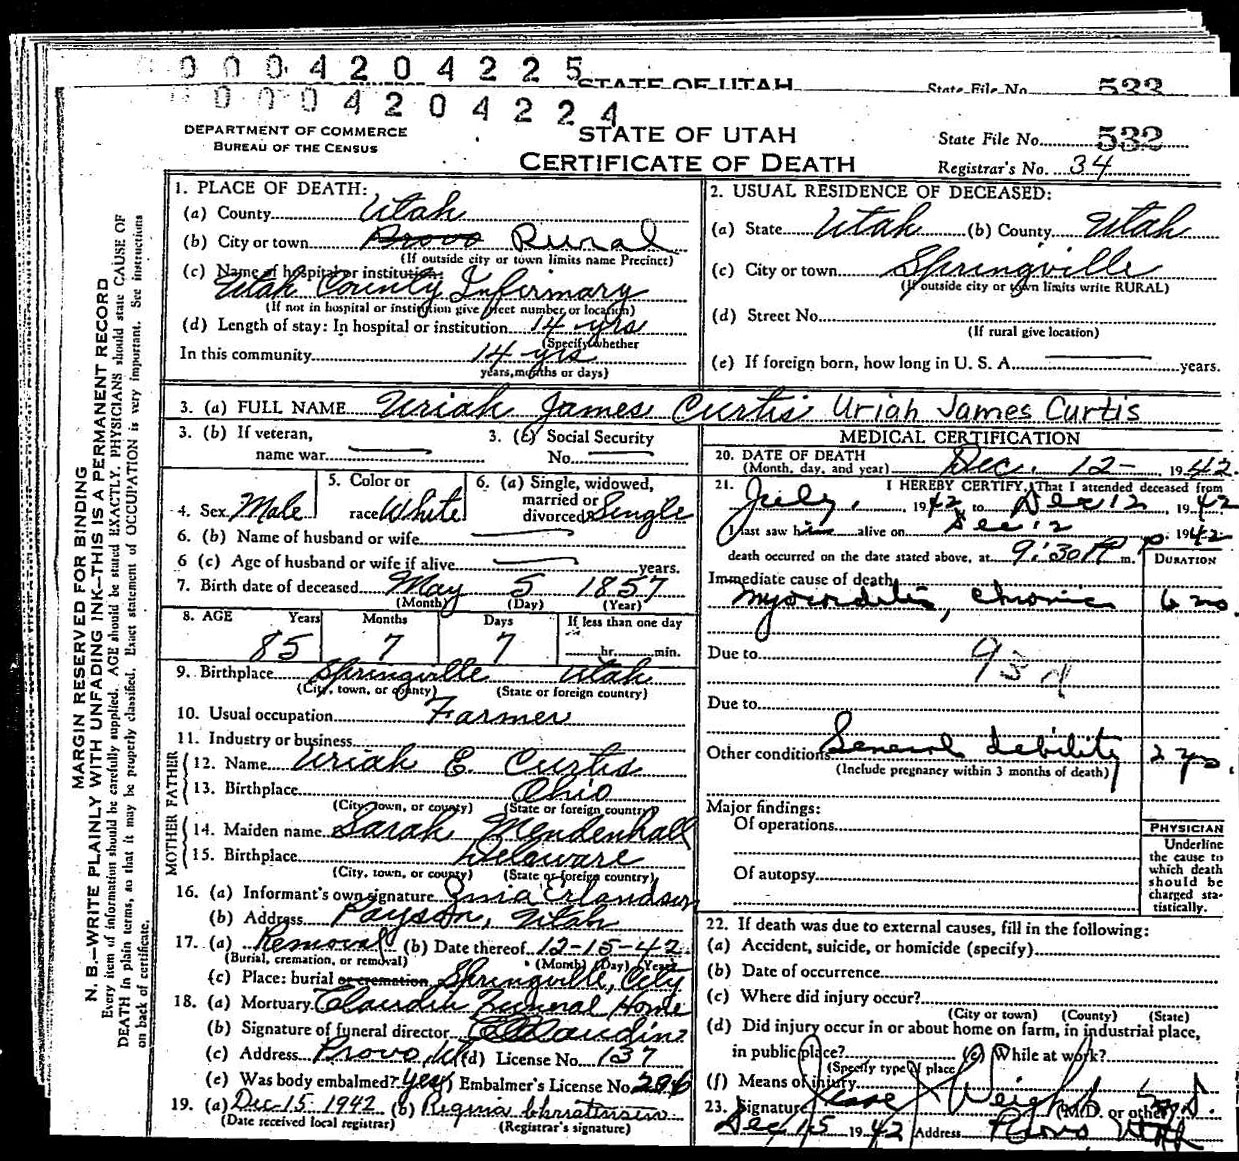 0004204225
STATE OF UTAH State File No. 533
0004204224
DEPARTMENT OF COMMERCE
BUREAU OF THE CENSUS
STATE OF UTAH
CERTIFICATE OF DEATH
State File No. 532
Registrar's No. 34
MARGIN RESERVED FOR BINDING
N. B.—WRITE PLAINLY WITH UNFADING INK—THIS IS A PERMANENT RECORD
Every item of information should be carefully supplied. AGE should be stated EXACTLY. PHYSICIANS should state CAUSE OF
DEATH in plain terms, so that it may be properly classified. Exact statement of OCCUPATION is very important. See instructions
on back of certificate.
1. PLACE OF DEATH:
(a) County Utah
(b) City or town Provo Rural
(If outside city or town limits name Precinct)
(c) Name of hospital or institution:
Utah County Infirmary
(If not in hospital or institution give street number or location)
(d) Length of stay: In hospital or institution 14 yrs
(Specify whether
In this community 14 yrs
years, months or days)
2. USUAL RESIDENCE OF DECEASED:
(a) State Utah (b) County Utah
(c) City or town Springville
(If outside city or town limits write RURAL)
(d) Street No.
(If rural give location)
(e) If foreign born, how long in U. S. A. years.
3. (a) FULL NAME Uriah James Curtis Uriah James Curtis
3. (b) If veteran,
name war
3. (c) Social Security
No.
4. Sex Male
5. Color or
race White
6. (a) Single, widowed,
married or
divorced Single
6. (b) Name of husband or wife
6 (c) Age of husband or wife if alive years.
7. Birth date of deceased May 5 1857
(Month) (Day) (Year)
8. AGE Years Months Days If less than one day
85 7 7 hr. min.
9. Birthplace Springville Utah
(City, town, or county) (State or foreign country)
10. Usual occupation Farmer
11. Industry or business
FATHER
12. Name Uriah E. Curtis
13. Birthplace Ohio
(City, town, or county) (State or foreign country)
MOTHER
14. Maiden name Sarah Mendenhall
15. Birthplace Delaware
(City, town, or county) (State or foreign country)
16. (a) Informant's own signature Erlandson
(b) Address Payson, Utah
17. (a) Removal (b) Date thereof 12-15-42
(Burial, cremation, or removal) (Month) (Day) (Year)
(c) Place: burial or cremation Springville, City
18. (a) Mortuary Claudin Funeral Home
(b) Signature of funeral director Claudin
(c) Address Provo, U (d) License No. 137
(e) Was body embalmed? yes (f) Embalmer's License No. 296
19. (a) Dec-15 1942 (b) Regina Christensen
(Date received local registrar) (Registrar's signature)
MEDICAL CERTIFICATION
20. DATE OF DEATH
(Month, day, and year) Dec. 12- 1942.
21. I HEREBY CERTIFY, That I attended deceased from
July, 1942 to Dec 12, 1942
I last saw him alive on Dec 12 1942
death occurred on the date stated above, at 9:30 P m. DURATION
Immediate cause of death
Myocarditis, chronic 6 mo.
Due to 93d
Due to
Other conditions General debility 2 yrs.
(Include pregnancy within 3 months of death)
Major findings:
Of operations
Of autopsy
PHYSICIAN
Underline
the cause to
which death
should be
charged sta-
tistically.
22. If death was due to external causes, fill in the following:
(a) Accident, suicide, or homicide (specify)
(b) Date of occurrence
(c) Where did injury occur?
(City or town) (County) (State)
(d) Did injury occur in or about home on farm, in industrial place,
in public place? (e) While at work?
(Specify type of place
(f) Means of injury
23. Signature Jesse J Weight M.D.
(M.D. or other)
Dec 15 1942 Address Provo Utah